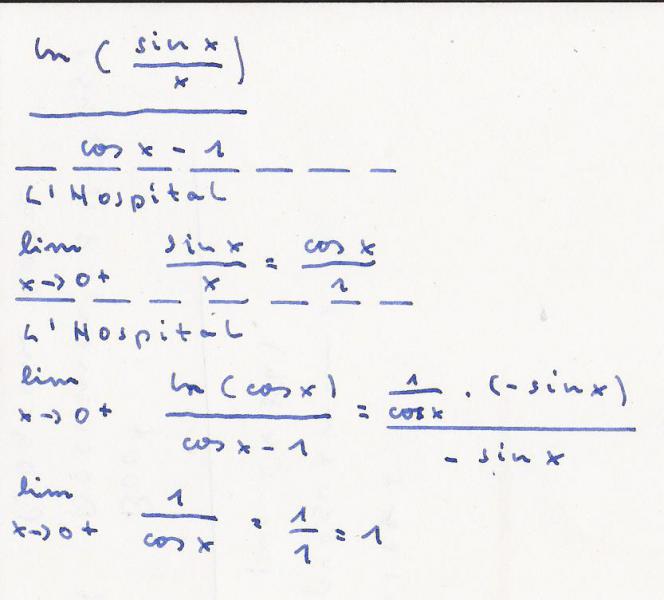 ln ( sin x / x )
cos x - 1
L'Hospital
lim x→0+ sin x / x = cos x / 1
L'Hospital
lim x→0+ ln (cos x) / cos x - 1 = 1 / cos x · (- sin x) / - sin x
lim x→0+ 1 / cos x = 1 / 1 = 1